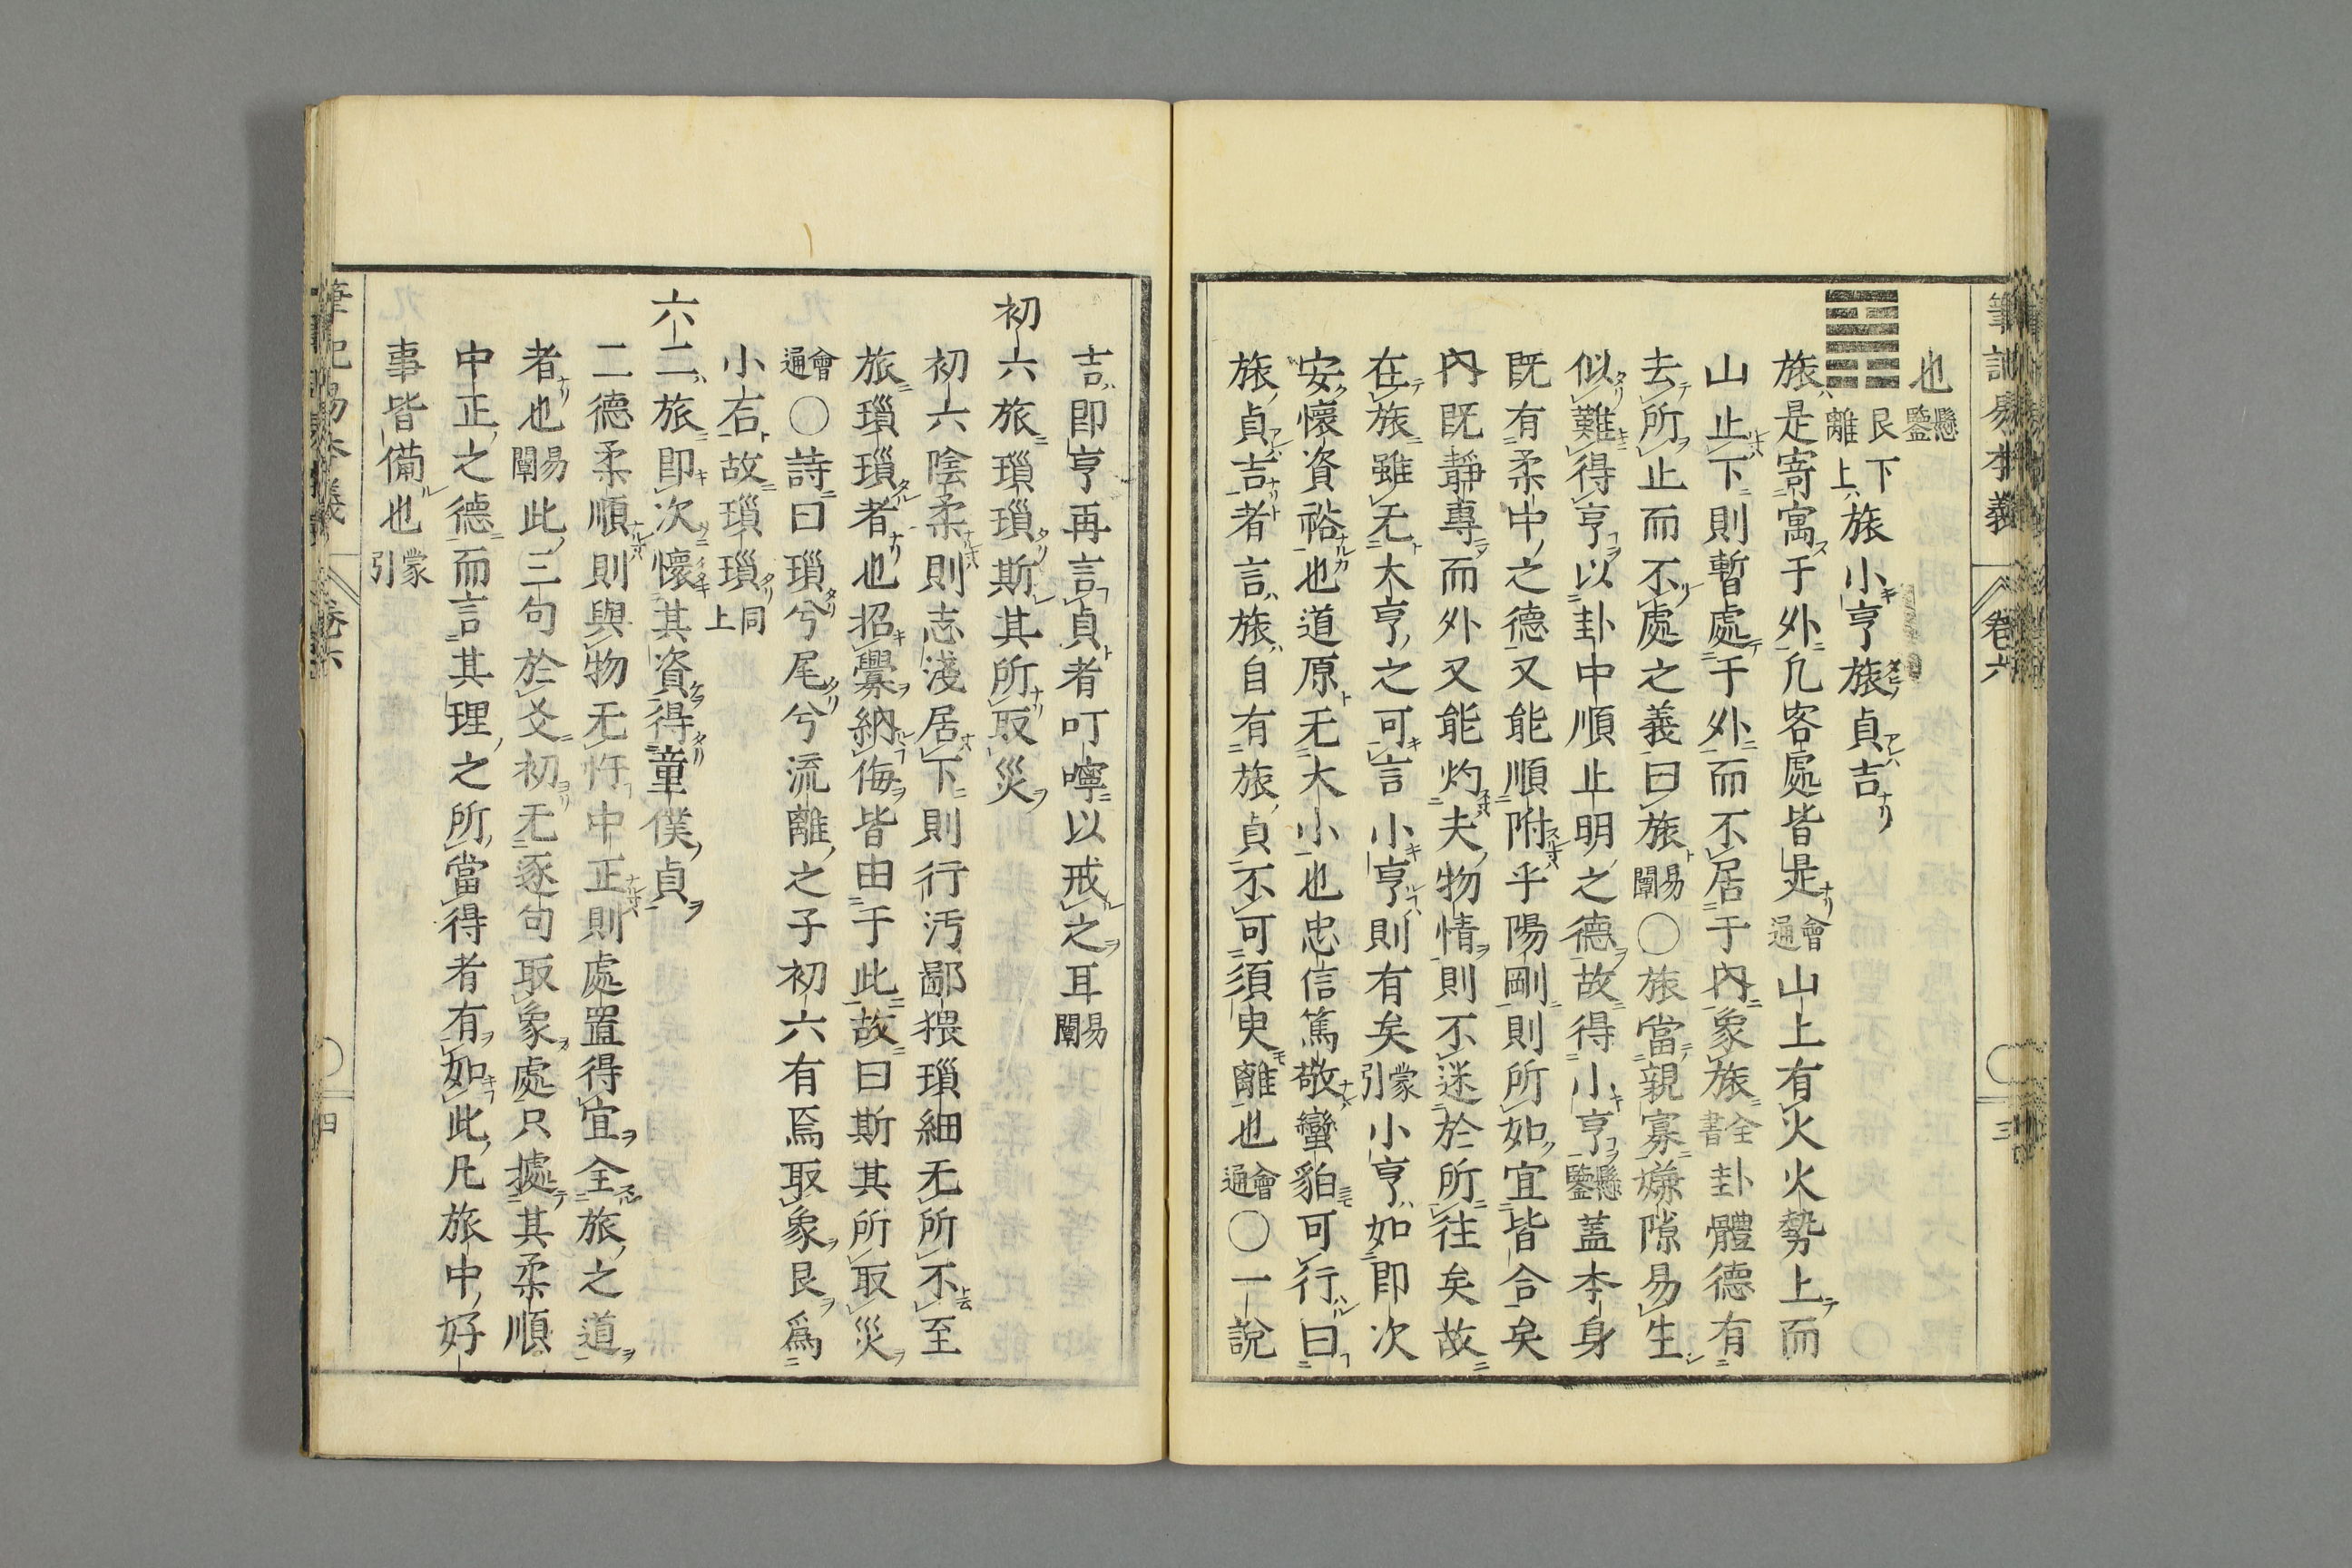 筆記易本義 卷六 三
也懸鑑
䷷艮下離上旅小亨旅貞吉
旅是寄寓于外凡客處皆是會通山上有火火勢上而
山止下則暫處于外而不居于內象旅全書卦體德有
去所止而不處之義曰旅易闡〇旅當親寡嫌隙易生
似難得亨以卦中順止明之德故得小亨懸鑑蓋本身
既有柔中之德又能順附乎陽剛則所如宜皆合矣
內既靜專而外又能灼夫物情則不迷於所往矣故
在旅雖无大亨之可言小亨則有矣蒙引小亨如即次
安懷資裕也道原无大小也忠信篤敬蠻貊可行曰
旅貞吉者言旅自有旅貞不可須臾離也會通〇一說
吉即亨再言貞者叮嚀以戒之耳易闡
初六旅瑣瑣斯其所取災
初六陰柔則志淺居下則行汚鄙猥瑣細无所不至
旅瑣瑣者也招釁納侮皆由于此故曰斯其所取災
會通〇詩曰瑣兮尾兮流離之子初六有焉取象艮爲
小石故瑣瑣同上
六二旅即次懷其資得童僕貞
二德柔順則與物无忤中正則處置得宜全旅之道
者也易闡此三句於爻初无逐句取象處只據其柔順
中正之德而言其理之所當得者有如此凡旅中好
事皆備也蒙引
筆記易本義 卷六 四